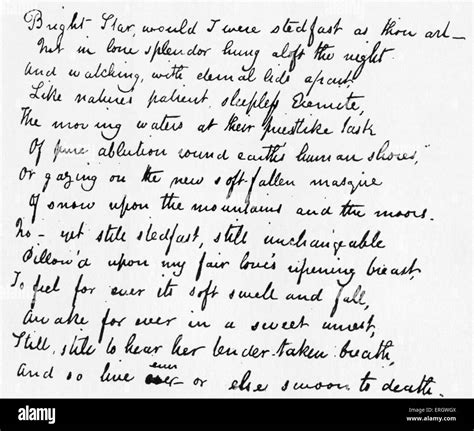 Bright Star, would I were stedfast as thou art—
Not in lone splendor hung aloft the night
And watching, with eternal lids apart,
Like natures patient, sleepless Eremite,
The moving waters at their priestlike task
Of pure ablution round earths human shores,
Or gazing on the new soft-fallen masque
Of snow upon the mountains and the moors.
No— yet still stedfast, still unchangeable
Pillow'd upon my fair love's ripening breast,
To feel for ever its soft swell and fall,
Awake for ever in a sweet unrest,
Still, still to hear her tender-taken breath,
even
And so live ever or else swoon to death.
alamy
Image ID: ERGWGX
www.alamy.com